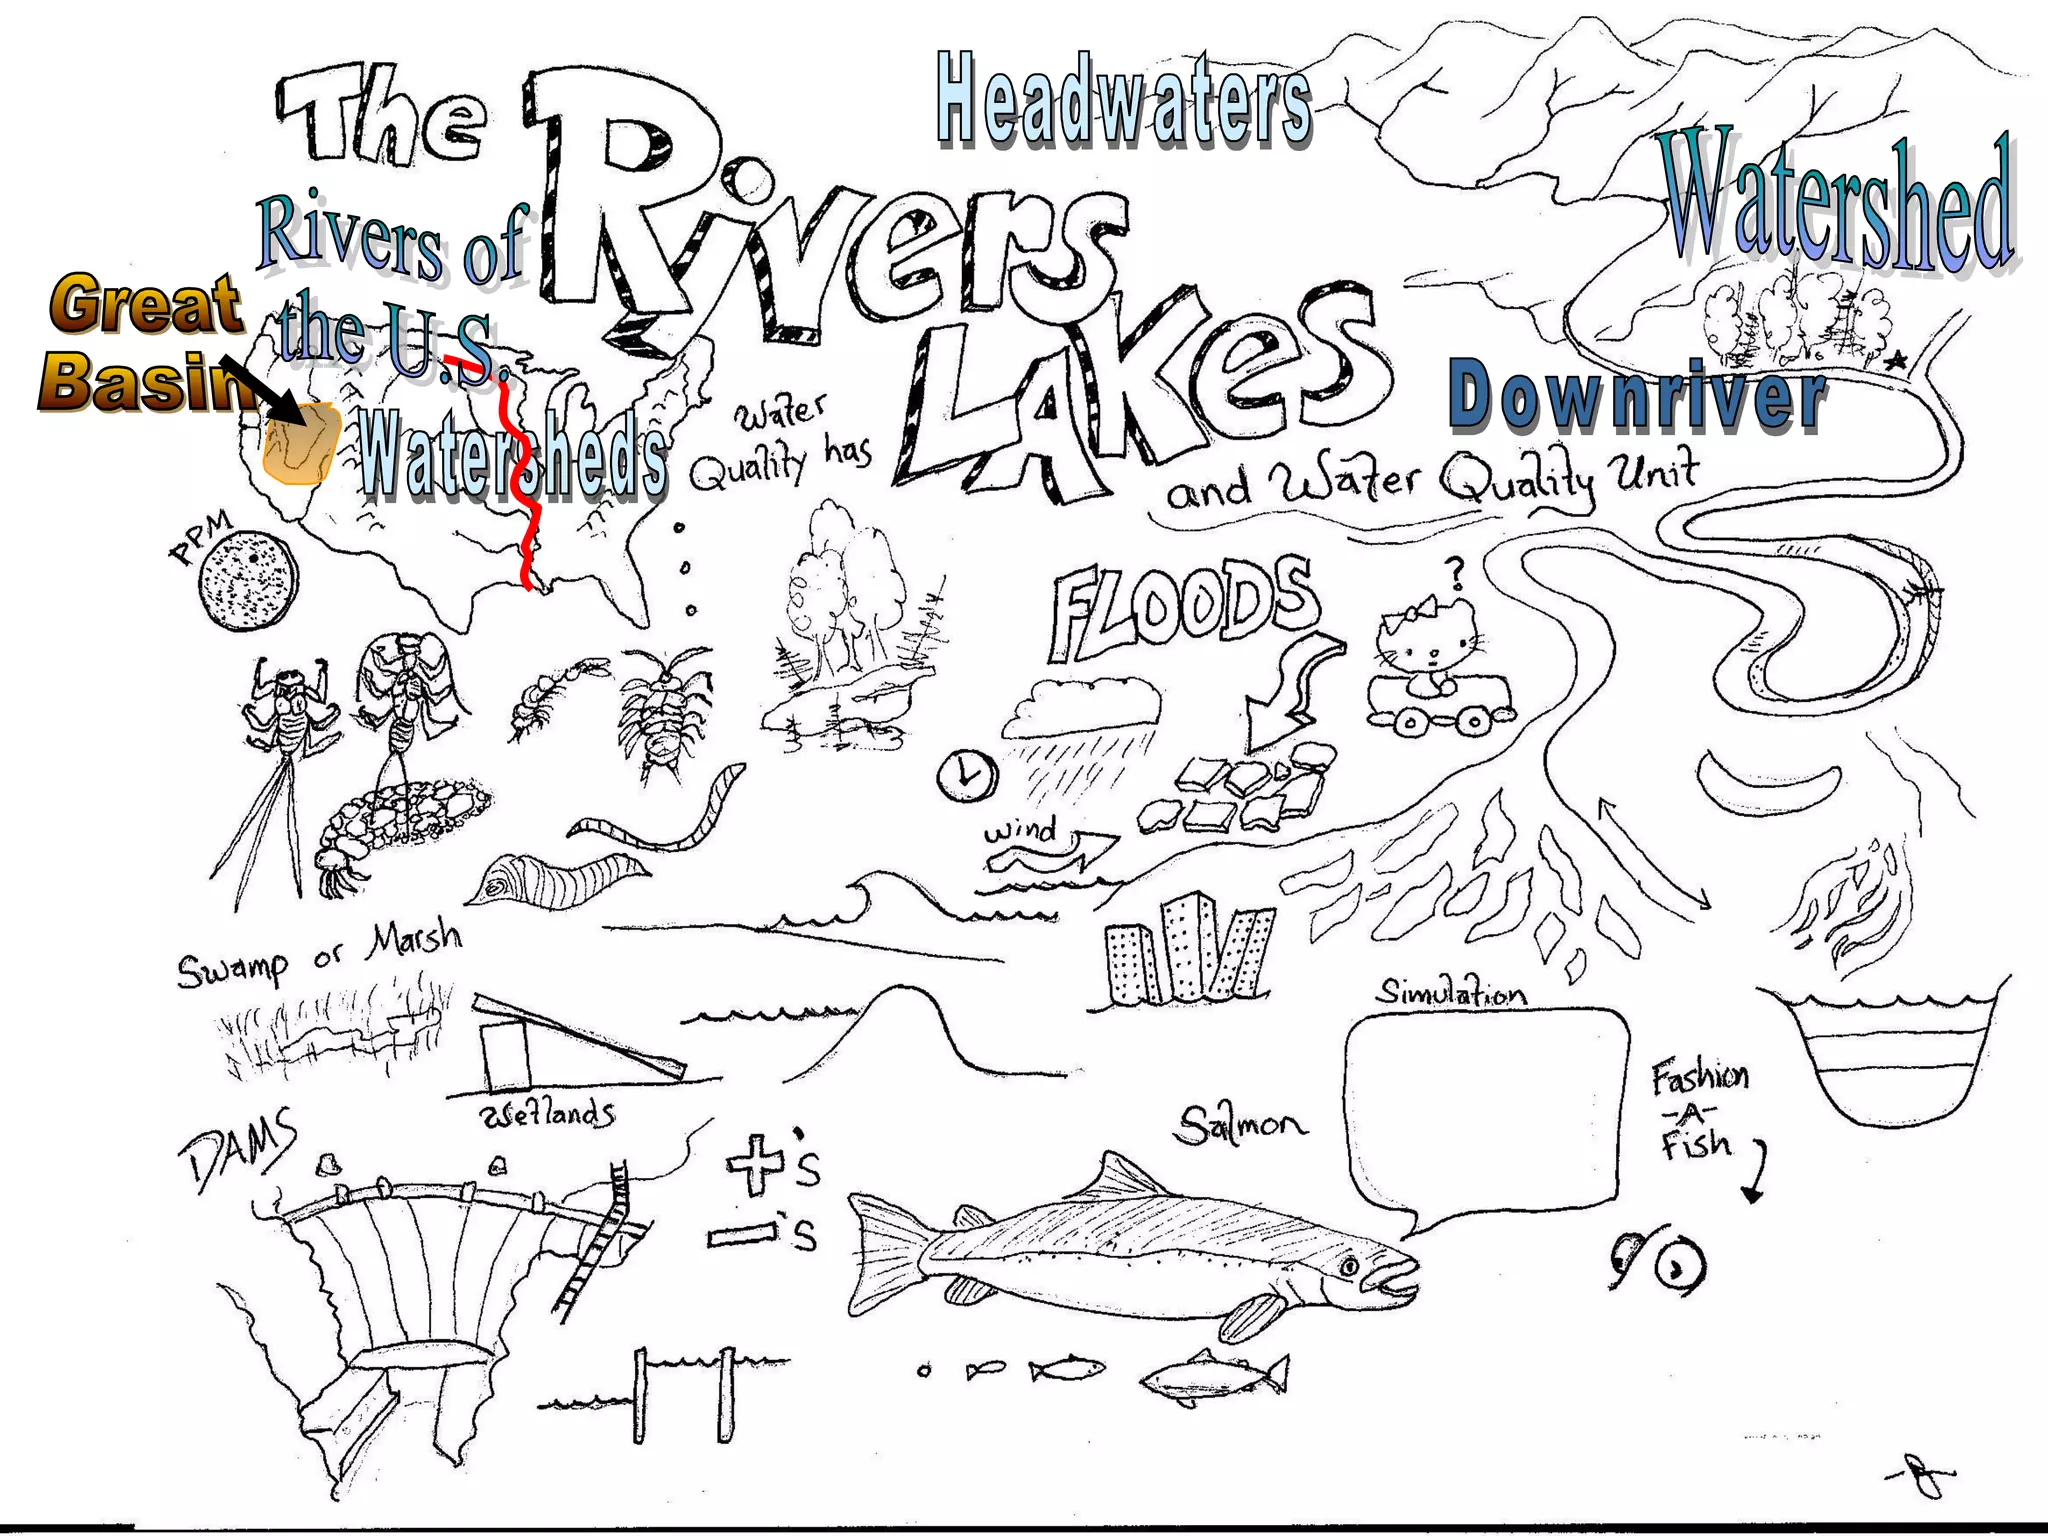 The Rivers
Lakes
and Water Quality Unit
Headwaters
Watershed
Rivers of
the U.S.
Great
Basin
Watersheds
Downriver
Water
Quality has
PPM
FLOODS
?
wind
Swamp or Marsh
Wetlands
Simulation
DAMS
+'s
-'s
Salmon
Fashion
-A-
Fish